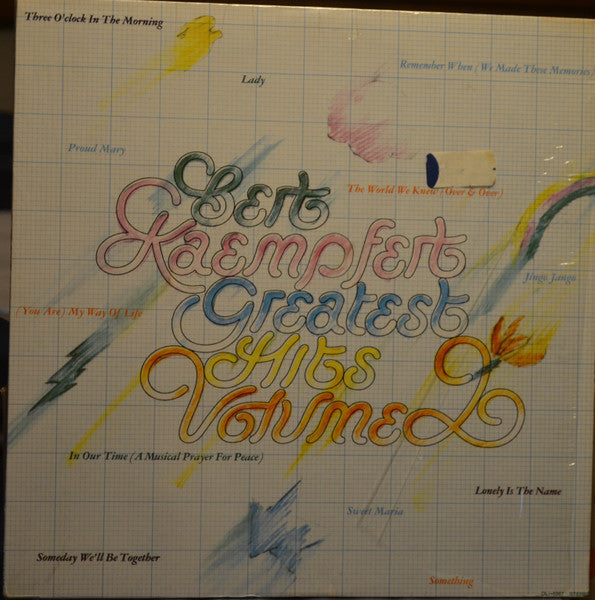 Three O'clock In The Morning
Lady
Remember When (We Made These Memories)
Proud Mary
The World We Knew (Over & Over)
Bert
Kaempfert
Greatest
Hits
Volume 2
Jingo Jango
(You Are) My Way Of Life
In Our Time (A Musical Prayer For Peace)
Lonely Is The Name
Sweet Maria
Someday We'll Be Together
Something